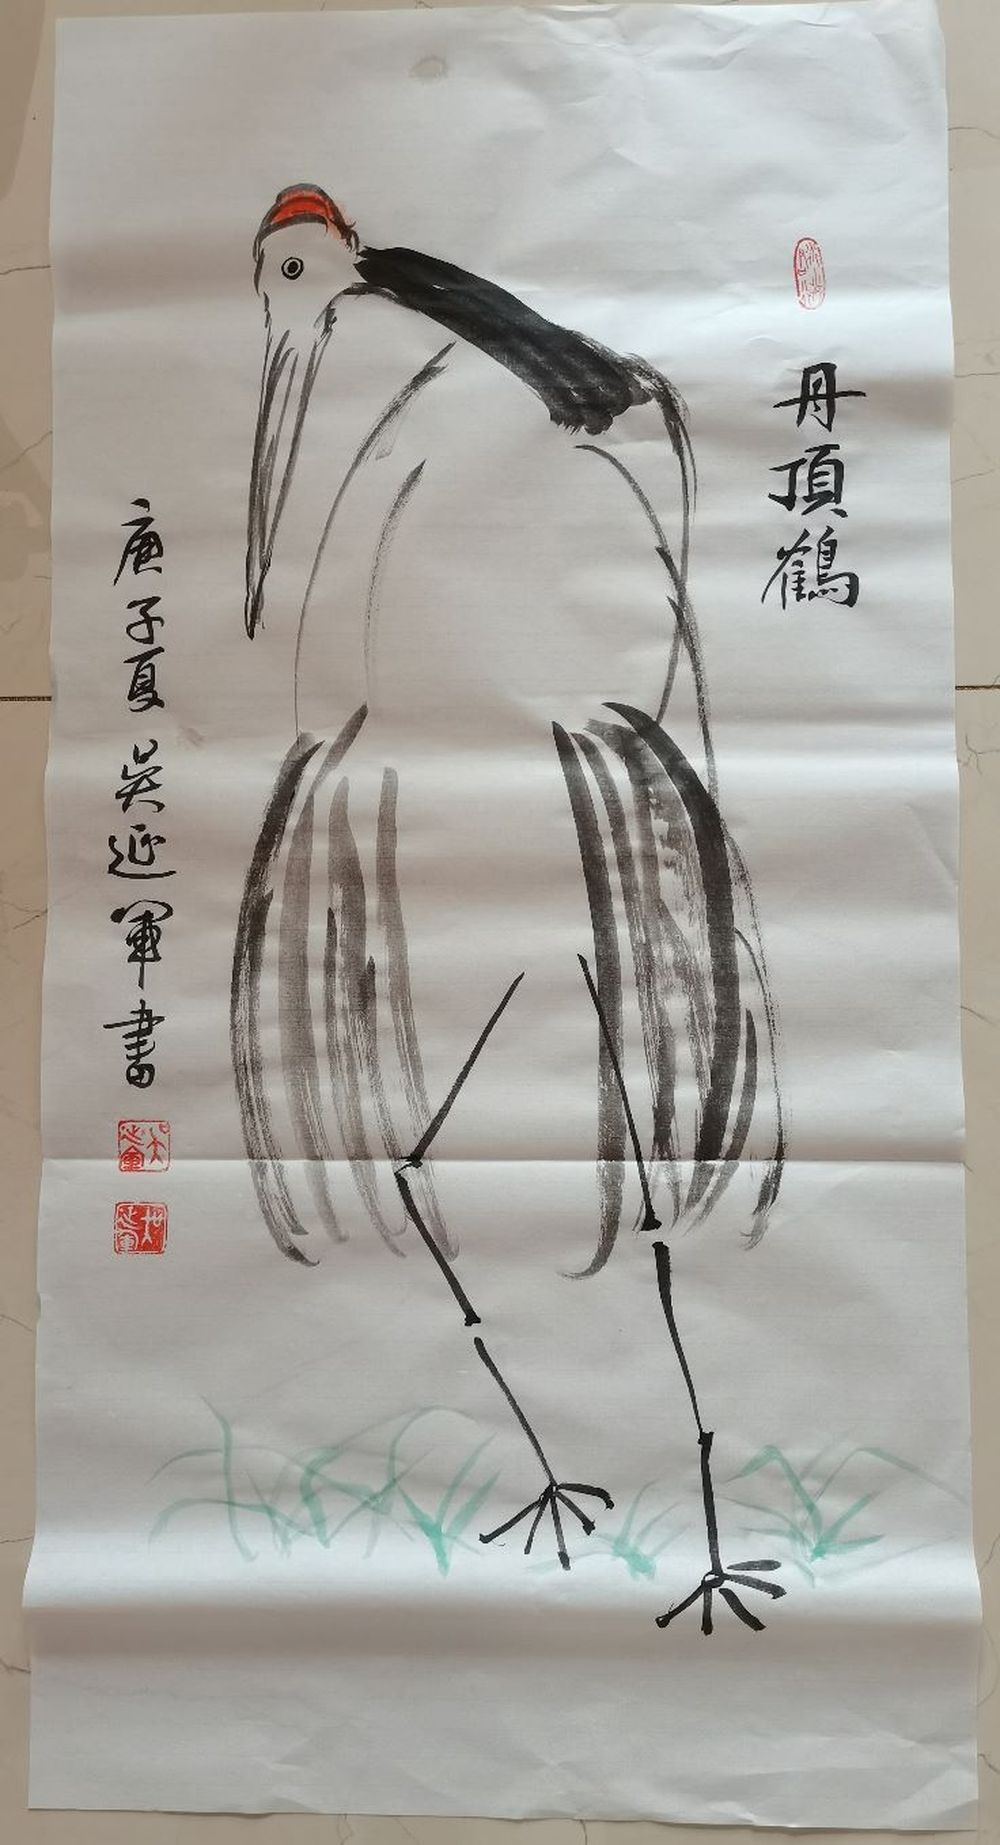 丹頂鶴
庚子夏 吴延軍畫